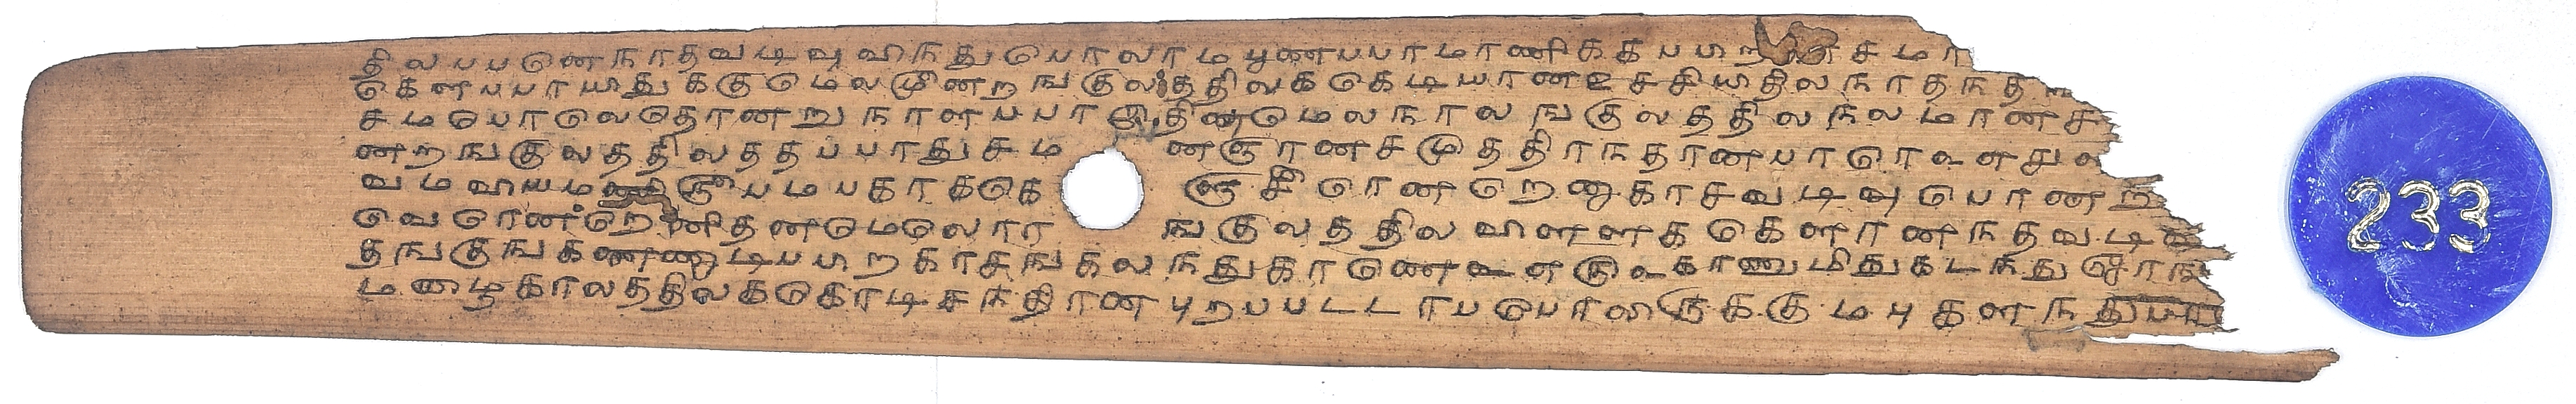 திலபபனெநாதவடிவுவிநதுபொலாமபூணபபாமாணிககபபற சமா
கெளபபாயிதுககுமெலமூினறஙகுலததிலககெடியாணஉசசியிதிலநாதநத
சமபொலெதொனறுநாளபபாஇதினமெலநாலஙகுலததிலநிலமானச
ணறஙகுலததிலததபபாதுசம ணஞானசமுததிரநதானபாரொஎனது
வமவியம ரூபமபகாககெ ஞசிரொணறெனுகாசவடிவுபொணற
வெரொணறெணிதனமெலொர ஙகுலததிலவிளளககெளானநதவடிவ
தஙகுஙகணணாடிபபிறகாசஙகலநதுகாணெஎனறுஉகாணுமிதுகடநதுஞாந
மழைகாலததிலககொடிசநதிரனபுறபபடடாபபொலிருககுமபுகளநதுபா
233